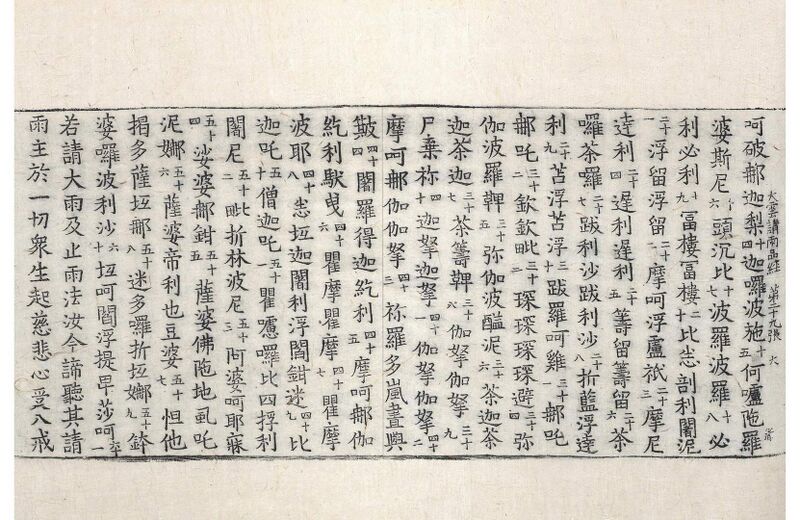 呵破那迦梨十四迦囉波施十五何嚧陁羅
大雲請雨品經 第二十九張 六
婆斯尼十六頭沉比十七波羅波羅十八必
利必利十九冨樓冨樓二十比悉剖利闍泥
二十一浮留浮留二十二摩呵浮盧祇二十三摩尼
達利二十四遲利遲利二十五籌留籌留二十六荼
囉荼囉二十七跋利沙跋利沙二十八折藍浮達
利二十九苫浮苫浮三十跋羅呵雞三十一那吒
那吒三十二欽欽毗三十三琛琛琛琛避三十四弥
伽波羅鞞三十五弥伽波醯泥三十六荼迦荼
迦荼迦三十七荼籌鞞三十八伽拏伽拏三十九
尸棄祢四十迦拏迦拏四十一伽拏伽拏四十二
摩呵那伽伽拏三祢羅多嵐晝與
皷四十四闍羅得迦紇利四十五摩呵那伽
紇利䭾曳四十六瞿摩瞿摩四十七瞿摩
波耶四十八悉坘迦闍利浮闍鉗迷四十九比
迦吒五十僧迦吒五十一瞿嚧囉比四捊利
闍尼五十二毗折林波尼五十三阿婆呵耶寐
五十四娑婆那鉗五十五薩婆佛陁地虱吒
泥娜五十六薩婆帝利也豆婆五十七怛他
揭多薩坘那五十八迷多羅折坘娜五十九
婆囉波利沙六十坘呵閻浮提早莎呵六十一
若請大雨及止雨法汝今諦聽其請
雨主於一切衆生起慈悲心受八戒